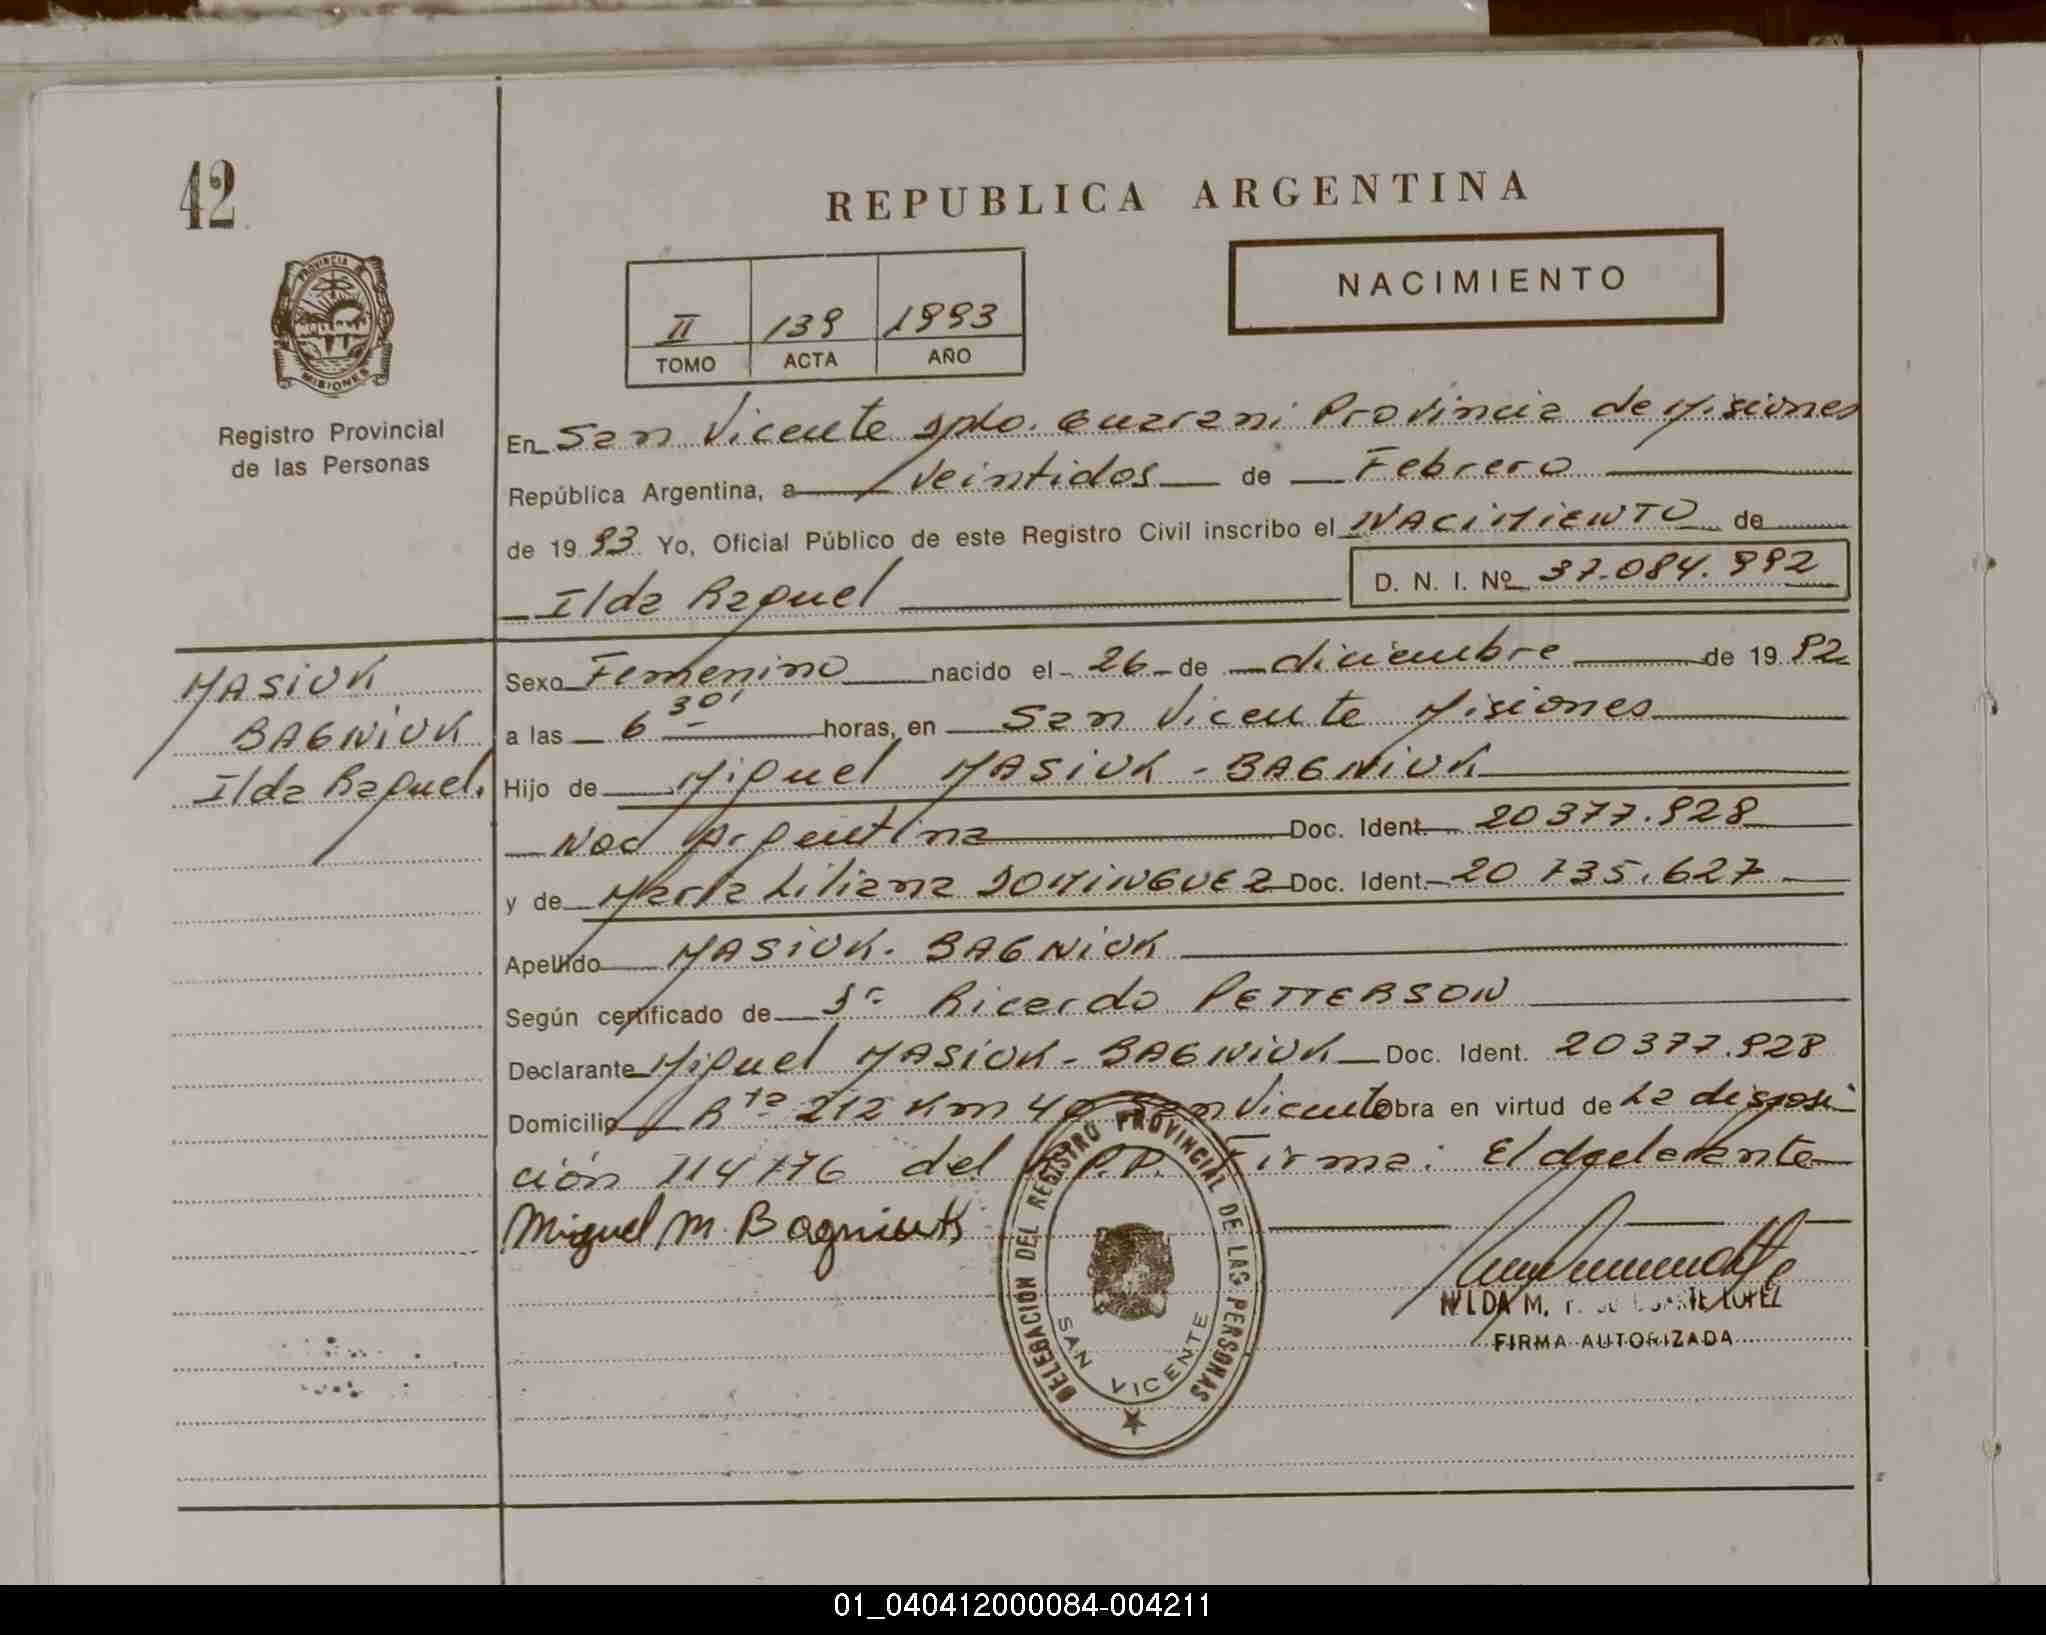 42
REPUBLICA ARGENTINA
NACIMIENTO
II 139 1993
TOMO ACTA AÑO
PROVINCIA DE
MISIONES
Registro Provincial
de las Personas
En San Vicente Dpto. Guarani Provincia de Misiones
República Argentina, a Veintidos de Febrero
de 19 93 Yo, Oficial Público de este Registro Civil inscribo el NACIMIENTO de
Ilda Raquel D. N. I. Nº 37.084.992
MASIUK
BAGNIUK
Ilda Raquel.
Sexo Femenino nacido el 26 de diciembre de 19 92
a las 6 30' horas, en San Vicente Misiones
Hijo de Miguel MASIUK - BAGNIUK
Nac Argentina Doc. Ident. 20377.928
y de Maria Liliana DOMINGUEZ Doc. Ident. 20 735.627
Apellido MASIUK - BAGNIUK
Según certificado de Dr Ricardo PETTERSON
Declarante Miguel MASIUK - BAGNIUK Doc. Ident. 20377.928
Domicilio Rta 212 Km 40 San Vicente Obra en virtud de La disposi
ción 114/76 del R.P.P. Firma: El declarante
Miguel M. Bagniuk
DELEGACIÓN DEL REGISTRO PROVINCIAL DE LAS PERSONAS
SAN VICENTE
NILDA M. LOPEZ
FIRMA AUTORIZADA
01_040412000084-004211